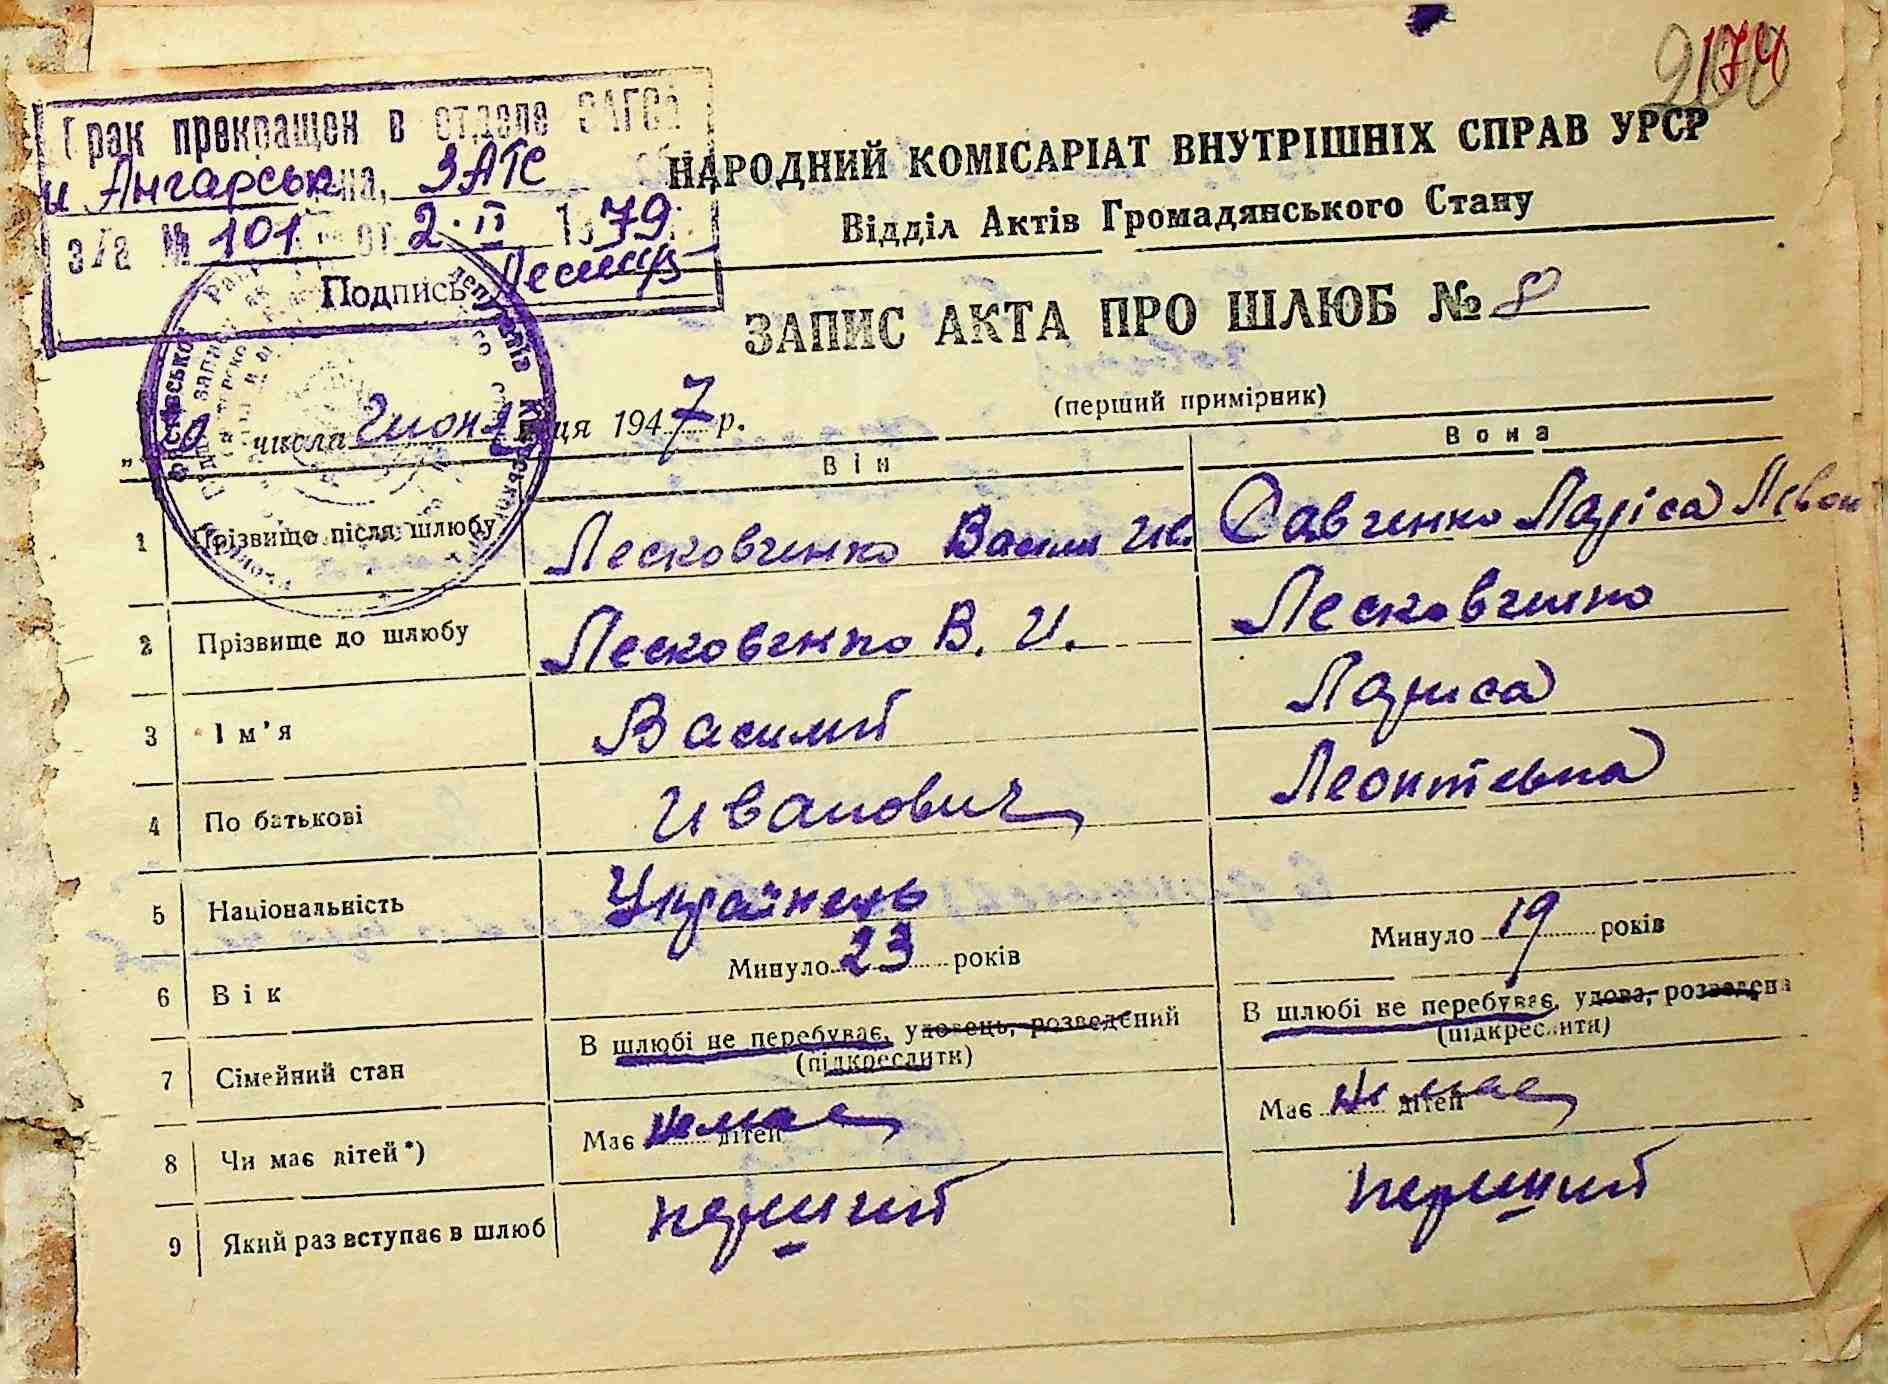 174
Брак прекращен в отделе ЗАГСа
м Ангарськ на, ЗАГС
з/а № 101 от 2.II 1979 г.
Подпись
НАРОДНИЙ КОМІСАРІАТ ВНУТРІШНІХ СПРАВ УРСР
Відділ Актів Громадянського Стану
ЗАПИС АКТА ПРО ШЛЮБ № 8
(перший примірник)
числа Июня ця 1947 р.
Він Вона
1 Прізвище після шлюбу Лесковченко Васили Ив. Савченко Ларіса Левон
2 Прізвище до шлюбу Лесковченко В. И. Лесковченко
3 Ім'я Василий Лариса
4 По батькові Иванович Леонтьевна
5 Національність Украйнець
6 Вік Минуло 23 років Минуло 19 років
7 Сімейний стан В шлюбі не перебуває, удовець, розведений В шлюбі не перебуває, удова, розведена
(підкреслити) (підкреслити)
8 Чи має дітей*) Має немає дітей Має не має дітей
9 Який раз вступає в шлюб перший перший